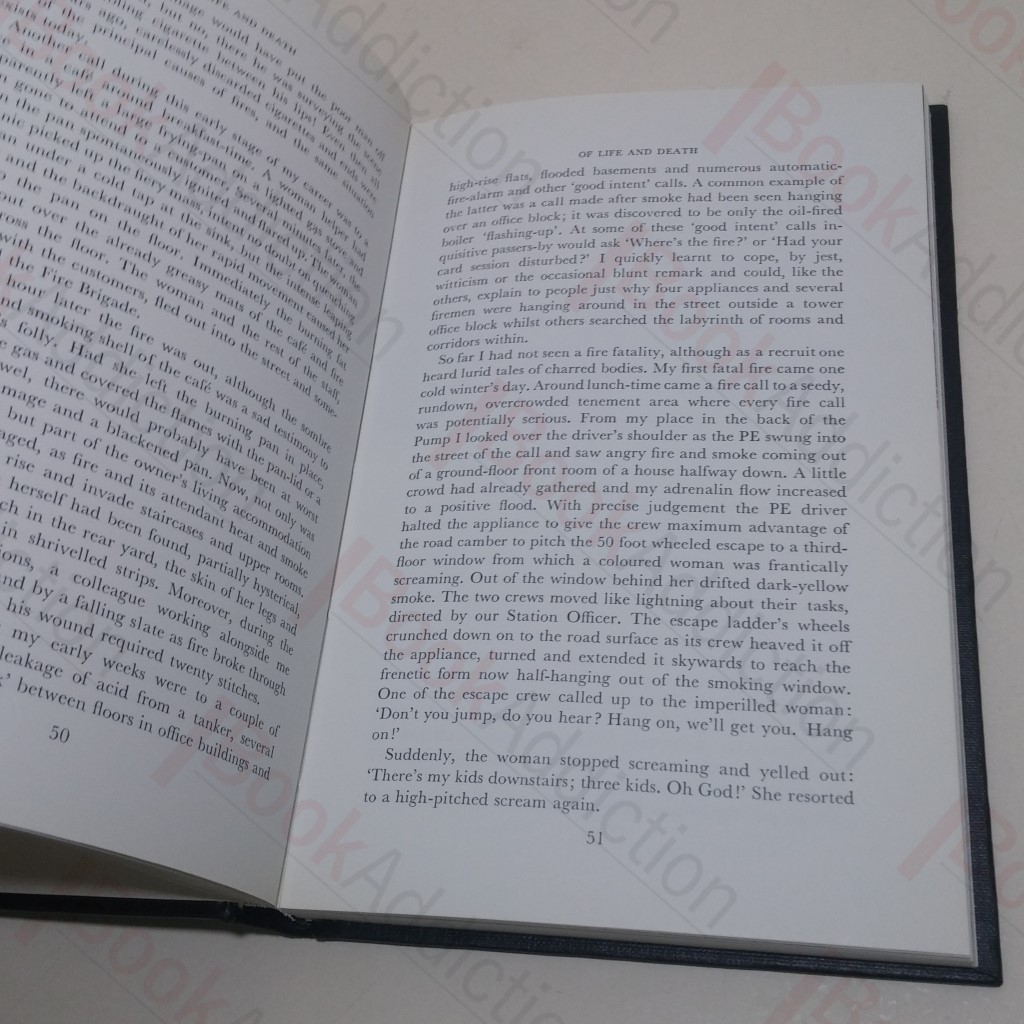 OF LIFE AND DEATH
mage would have put the poor man off
, but no, there he was surveying the scene
ling cigarette between his lips! Even then, all
ars ago, carelessly discarded cigarette ends were
of the principal causes of fires, and the same situation
xists today.
Another call during this early stage of my career was to a
e in a café around breakfast-time. A woman helper had
parently left a large frying-pan on a lighted gas stove and
n gone to attend to a customer. Several minutes later, the
n the pan spontaneously ignited and flared up. The woman
nic picked up the fiery mass, intent no doubt on quenching
an under a cold tap at the sink, but the intense leaping
and the backdraught of her rapid movement caused her
o the pan on the floor. Immediately the burning fat
out over the already greasy mats of the café and fire
ross the floor. The woman and the rest of the staff,
with the customers, fled out into the street and some-
the Fire Brigade.
hour later the fire was out, although the sombre
nd smoking shell of the café was a sad testimony to
s folly. Had she left the burning pan in place,
e gas and covered the flames with the pan-lid or a
wel, there would probably have been at worst
mage and a blackened pan. Now, not only was
but part of the owner's living accommodation
aged, as fire and its attendant heat and smoke
rise and invade staircases and upper rooms.
herself had been found, partially hysterical,
ch in the rear yard, the skin of her legs and
in shrivelled strips. Moreover, during the
ions, a colleague working alongside me
nd by a falling slate as fire broke through
his wound required twenty stitches.
my early weeks were to a couple of
leakage of acid from a tanker, several
' between floors in office buildings and
50
OF LIFE AND DEATH
high-rise flats, flooded basements and numerous automatic-
fire-alarm and other 'good intent' calls. A common example of
the latter was a call made after smoke had been seen hanging
over an office block; it was discovered to be only the oil-fired
boiler 'flashing-up'. At some of these 'good intent' calls in-
quisitive passers-by would ask 'Where's the fire?' or 'Had your
card session disturbed?' I quickly learnt to cope, by jest,
witticism or the occasional blunt remark and could, like the
others, explain to people just why four appliances and several
firemen were hanging around in the street outside a tower
office block whilst others searched the labyrinth of rooms and
corridors within.
So far I had not seen a fire fatality, although as a recruit one
heard lurid tales of charred bodies. My first fatal fire came one
cold winter's day. Around lunch-time came a fire call to a seedy,
rundown, overcrowded tenement area where every fire call
was potentially serious. From my place in the back of the
Pump I looked over the driver's shoulder as the PE swung into
the street of the call and saw angry fire and smoke coming out
of a ground-floor front room of a house halfway down. A little
crowd had already gathered and my adrenalin flow increased
to a positive flood. With precise judgement the PE driver
halted the appliance to give the crew maximum advantage of
the road camber to pitch the 50 foot wheeled escape to a third-
floor window from which a coloured woman was frantically
screaming. Out of the window behind her drifted dark-yellow
smoke. The two crews moved like lightning about their tasks,
directed by our Station Officer. The escape ladder's wheels
crunched down on to the road surface as its crew heaved it off
the appliance, turned and extended it skywards to reach the
frenetic form now half-hanging out of the smoking window.
One of the escape crew called up to the imperilled woman:
'Don't you jump, do you hear? Hang on, we'll get you. Hang
on!'
Suddenly, the woman stopped screaming and yelled out:
'There's my kids downstairs; three kids. Oh God!' She resorted
to a high-pitched scream again.
51
BookAddiction